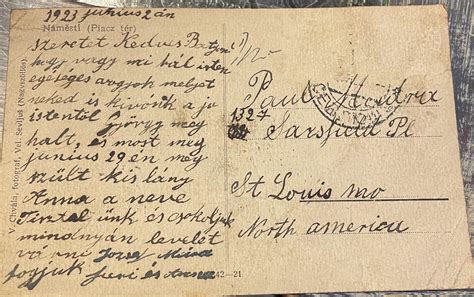 1923 junius 2 án
Náměstí (Piacz tér)
szeretet Kedves
hogy vagy mi hál isten
egeseges vagyok meljet
neked is kivonk a jo
istentöl György meg
halt, és most meg
junius 29 en meg
szült kis lány
Anna a neve
Tisztel ünk és csokoljuk
mindnyán levelét
várni Jozsef
fogjuk Juri és Anna
V. Chvála, fotograf, Vel. Sevljuš (Nagyszőllős).
42-21
Paul
1327
Sarsfield Pl
St Louis mo
North america